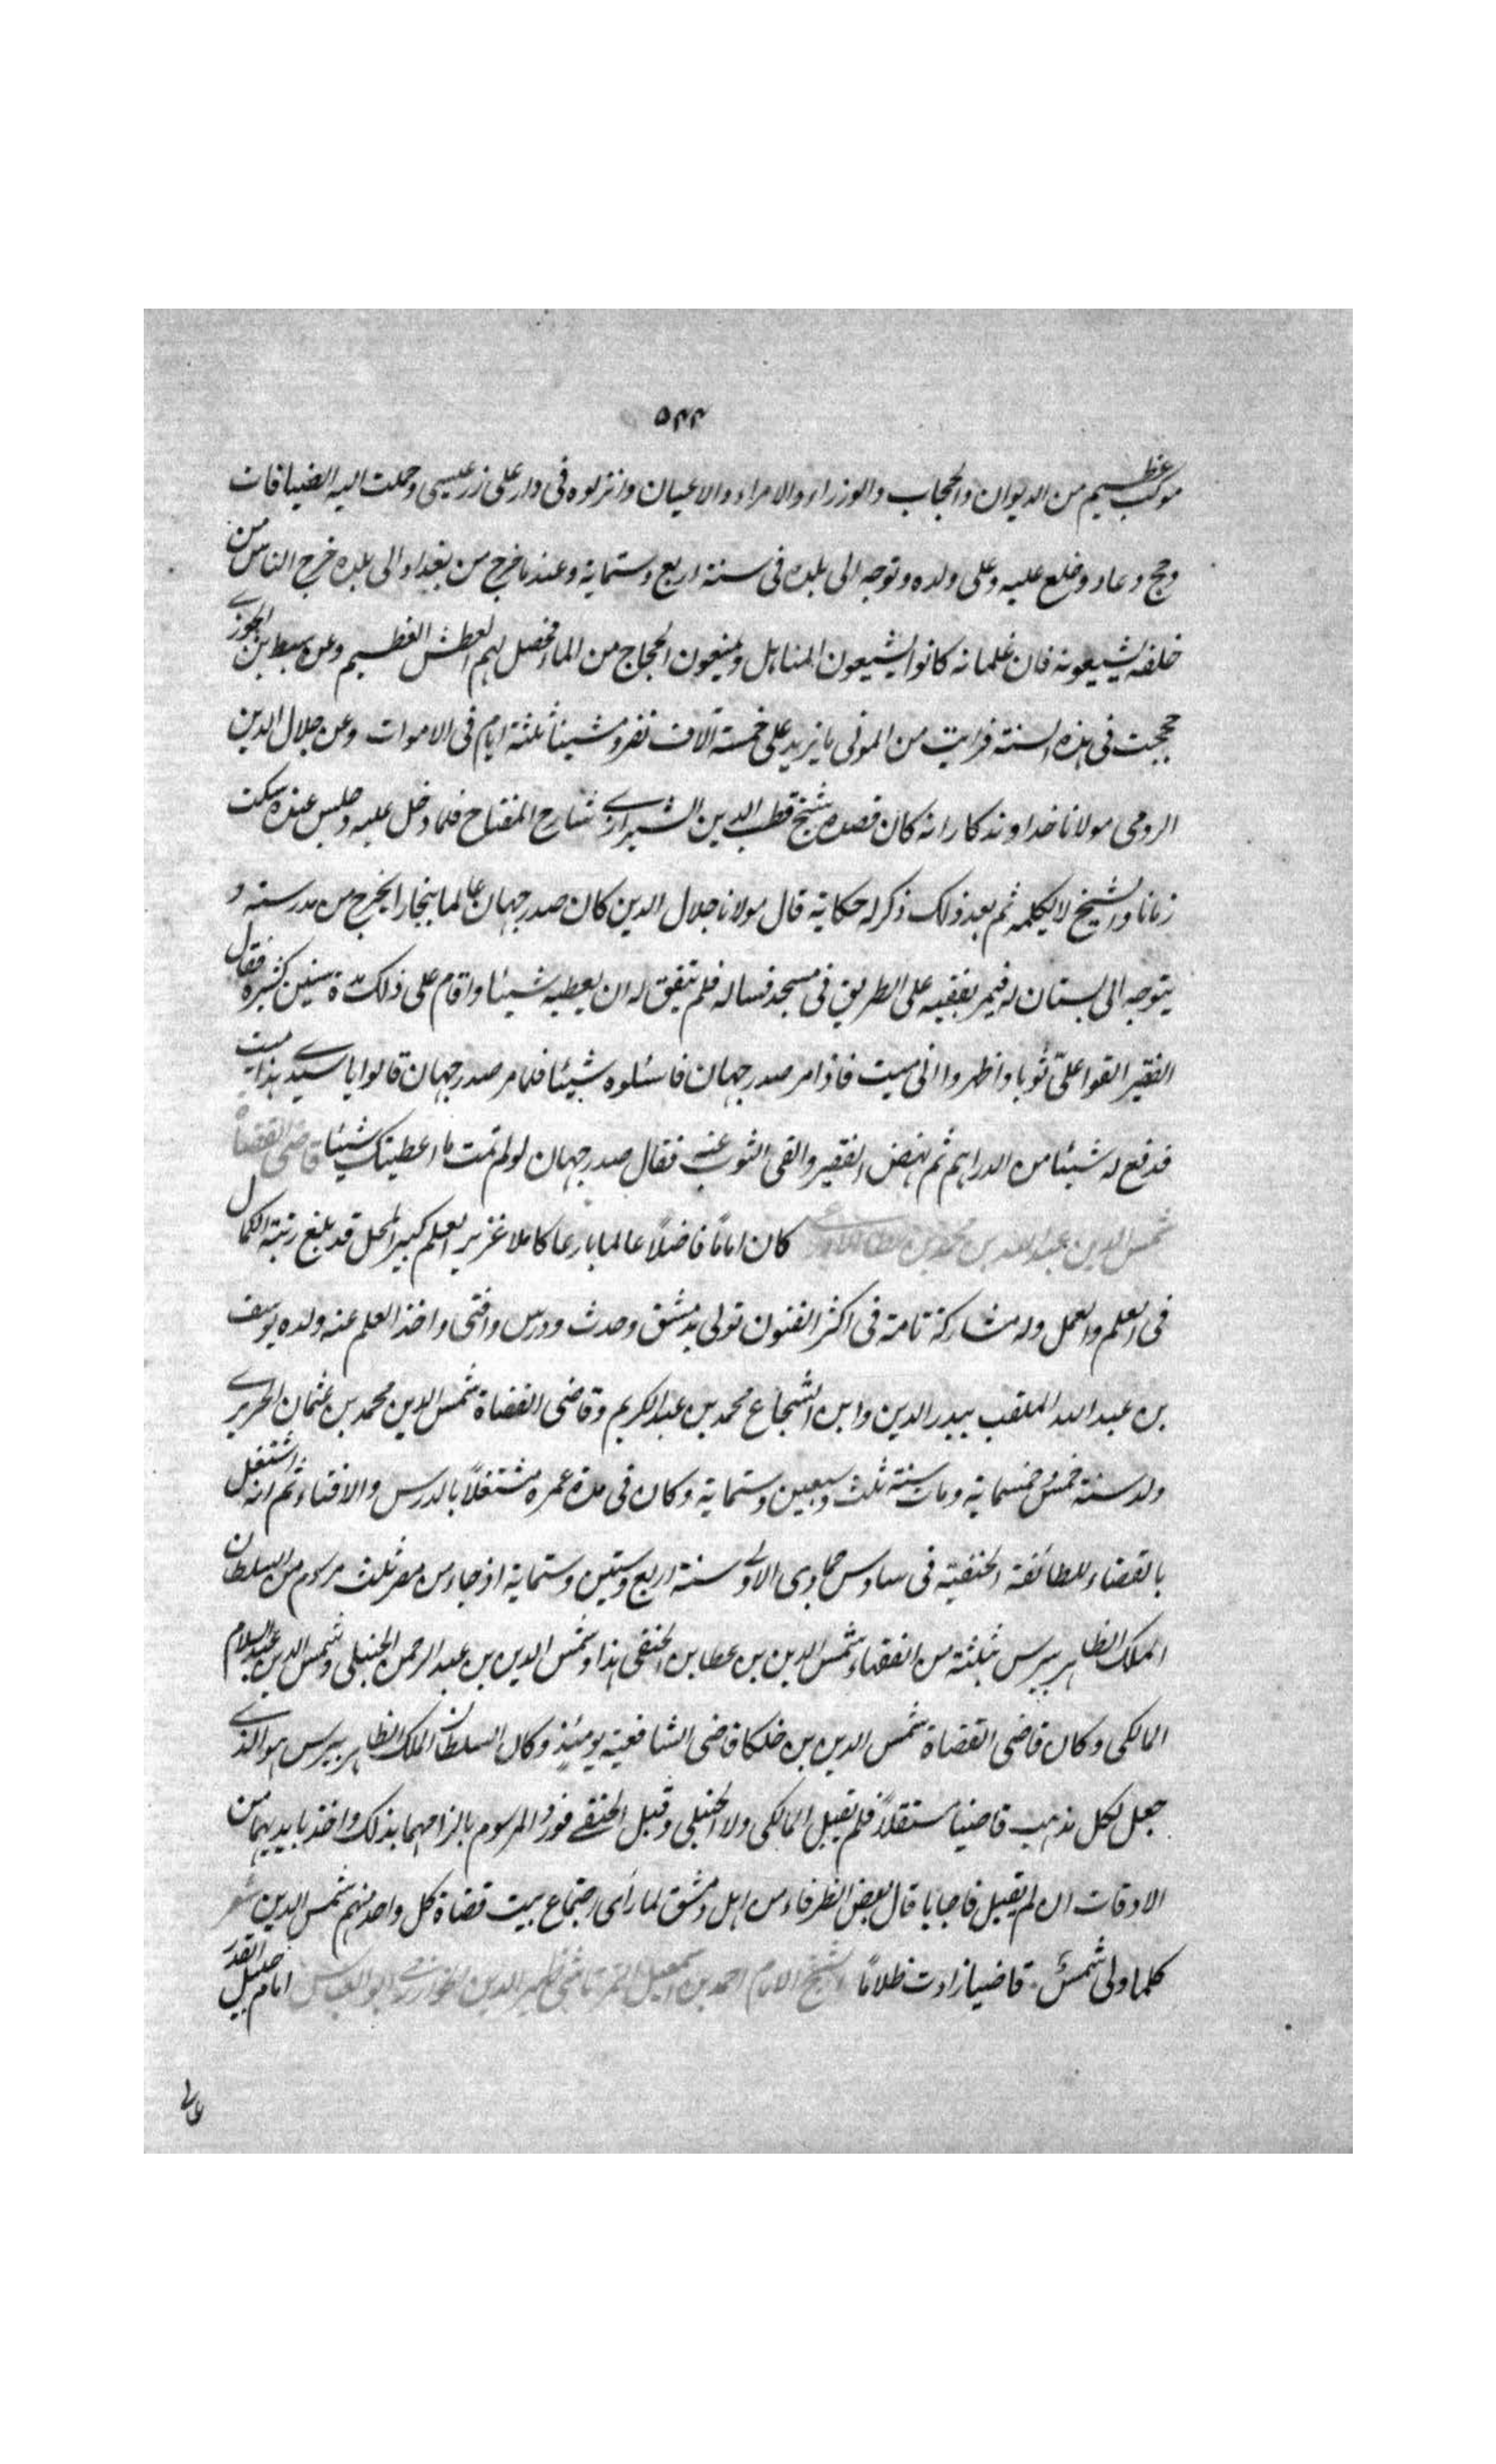 ٥٤٤
موكب عظيم من الديوان والحجاب والوزراء والامراء والاعيان وانزلوه فى دار على زر عيسى وحملت اليه الضيافات
وحج وعاد وخلع عليه وعلى ولده وتوجه الى بلده فى سنة اربع وستماية وعندما خرج من بغداد الى بلده خرج الناس من
خلفه يشيعونه فان غلمانه كانوا يشيعون المناهل ويمنعون الحجاج من الماء فحصل لهم العطش العظيم وعن سبط بن الجوزى
حججت فى هذه السنة فرايت من الموتى ما يزيد على خمسة آلاف نفر ومشينا ثلثة ايام فى الاموات وعن جلال الدين
الرومى مولانا خداوندكار انه كان قصده شيخ قطب الدين الشيرازى شارح المفتاح فلما دخل عليه وجلس عنده سكت
زمانا والشيخ لا يكلمه ثم بعد ذلك ذكر له حكاية قال مولانا جلال الدين كان صدر جهان عالما ببخارا يخرج من مدرسته و
يتوجه الى بستان له فيمر بفقيه على الطريق فى مسجد فساله فلم يتفق له ان يعطيه شيئا واقام على ذلك مدة سنين كثيرة فقال
الفقير القوا على ثوبا واظهروا انى ميت فاذا مر صدر جهان فاسئلوه شيئا فلما مر صدر جهان قالوا يا سيدى هذا ميت
فدفع له شيئا من الدراهم ثم نهض الفقير والقى الثوب عنه فقال صدر جهان لو لم تمت ما اعطيتك شيئا قاضى القضاة
شمس الدين عبد الله بن محمد بن عطا الاذرعى كان اماما فاضلاً عالما بارعا كاملا غزير العلم كبير المحل قد بلغ رتبة الكمال
فى العلم والعمل وله مشاركة تامة فى اكثر الفنون تولى بدمشق وحدث ودرس وافتى واخذ العلم عنه ولده يوسف
بن عبد الله الملقب ببدر الدين وابن الشجاع محمد بن عبد الكريم وقاضى القضاة شمس الدين محمد بن عثمان الحريرى
ولد سنة خمس وخمسماية ومات سنة ثلث وسبعين وستماية وكان فى مدة عمره مشتغلاً بالدرس والافتاء ثم انه اشتغل
بالقضاء للطائفة الحنفية فى سادس جمادى الاولى سنة اربع وستين وستماية اذ جاء من مصر ثلث مرسوم من السلطان
الملك الظاهر بيبرس بثلثة من الفقهاء شمس الدين بن عطا بن الحنفى هذا وشمس الدين بن عبد الرحمن الحنبلى وشمس الدين بن عبد السلام
المالكى وكان قاضى القضاة شمس الدين بن خلكا قاضى الشافعية يومئذٍ وكان السلطان الملك الظاهر بيبرس هو الذى
جعل لكل مذهب قاضيا مستقلاً فلم يقبل المالكى ولا الحنبلى وقبل الحنفى فورد المرسوم بالزامهما بذلك واخذ ما بايديهما من
الاوقات ان لم يقبل فاجابا قال بعض الظرفاء من اهل دمشق لما رأى اجتماع بيت قضاة كل واحد منهم شمس الدين شعر
كلما ولى شمسٌ قاضيا زادت ظلاماً الشيخ الامام احمد بن اسمعيل التمرتاشى ظهير الدين الخوارزمى ابو العباس امام جليل القدر
عالى